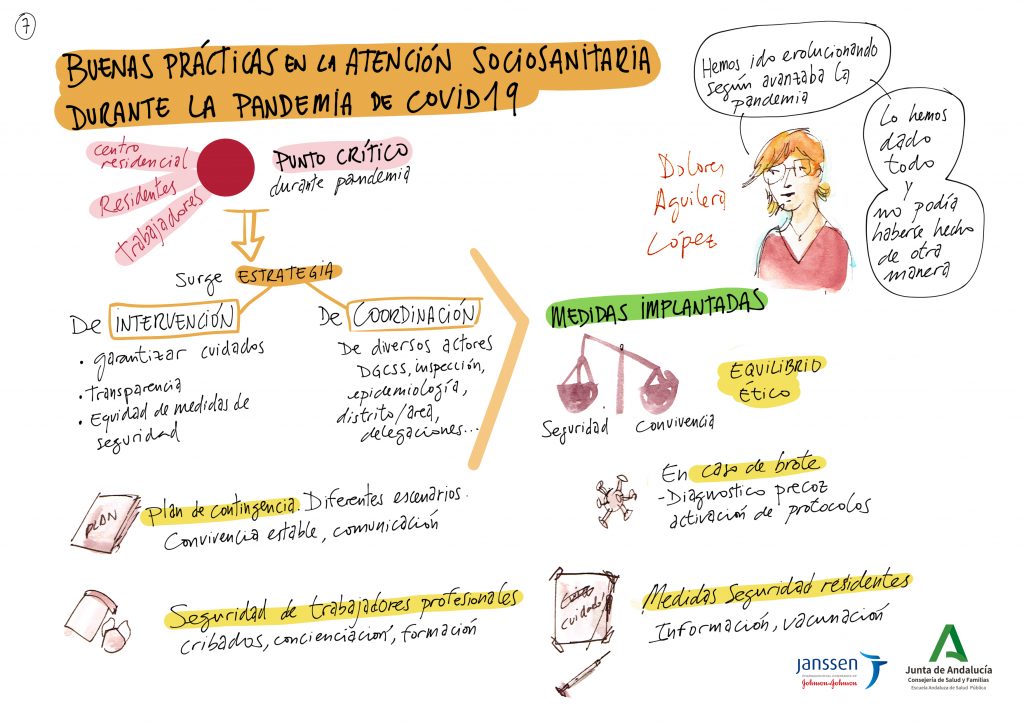 7
BUENAS PRÁCTICAS EN LA ATENCIÓN SOCIOSANITARIA
DURANTE LA PANDEMIA DE COVID19
Hemos ido evolucionando
según avanzaba la
pandemia
Lo hemos
dado
todo
y
no podía
haberse hecho
de otra
manera
Dolores
Aguilera
López
centro
residencial
Residentes
trabajadores
PUNTO CRÍTICO
durante pandemia
Surge ESTRATEGIA
De INTERVENCIÓN
• garantizar cuidados
• Transparencia
• Equidad de medidas de
seguridad
De COORDINACIÓN
De diversos actores
DGCSS, inspección,
epidemiología,
distrito/area,
delegaciones...
MEDIDAS IMPLANTADAS
EQUILIBRIO
ÉTICO
Seguridad
Convivencia
PLAN
plan de contingencia. Diferentes escenarios.
Convivencia estable, comunicación
En caso de brote
- Diagnostico precoz
activación de protocolos
Seguridad de trabajadores profesionales
cribados, concienciación, formación
cuidado!
Medidas Seguridad residentes
Información, vacunación
janssen
PHARMACEUTICAL COMPANIES OF
Johnson & Johnson
Junta de Andalucía
Consejería de Salud y Familias
Escuela Andaluza de Salud Pública